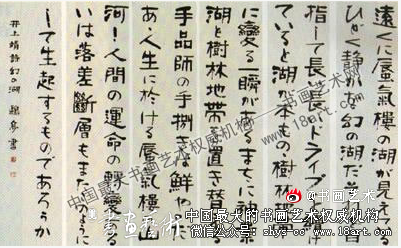 遠くに蜃氣樓の湖が見える
ひどく静かな幻の湖だ
指して長い長いドライブ
ていると湖が本もの樹林地
に變る一瞬があるまさに神業
湖と樹林地帯を置き替える
手品師の手捌きの鮮や
あゝ人生に於ける蜃氣樓の山
河!人間の運命の
いは落差斷層もまた
して生起するものであろうか
井上靖詩幻の湖 書
中国最大的书画艺术权威机构——书画艺术网
www.18art.com
书画艺术
@书画艺术
中国最大的书画艺术权威机构
微信公众号：shys-sz www.18art.com